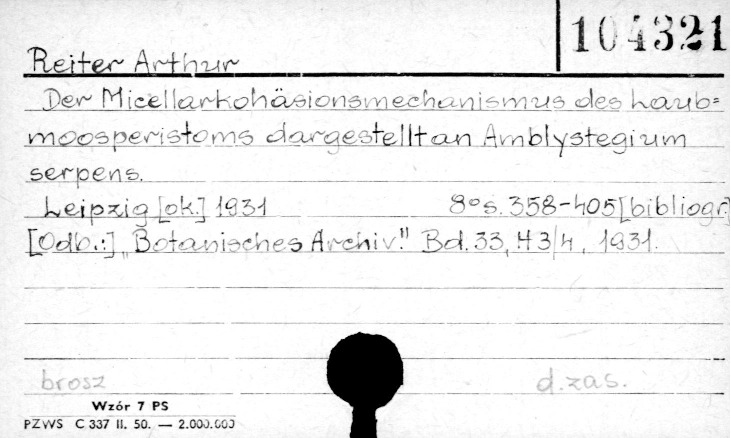 104321
Reiter Arthur
Der Micellarkohäsionsmechanismus des Laub=
moosperistoms dargestellt an Amblystegium
serpens.
Leipzig [ok.] 1931 8° s. 358-405 [bibliogr.]
[Odb.:] „Botanisches Archiv." Bd. 33, H 3/4, 1931.
brosz d. zas.
Wzór 7 PS
PZWS C 337 II. 50. — 2.000.000